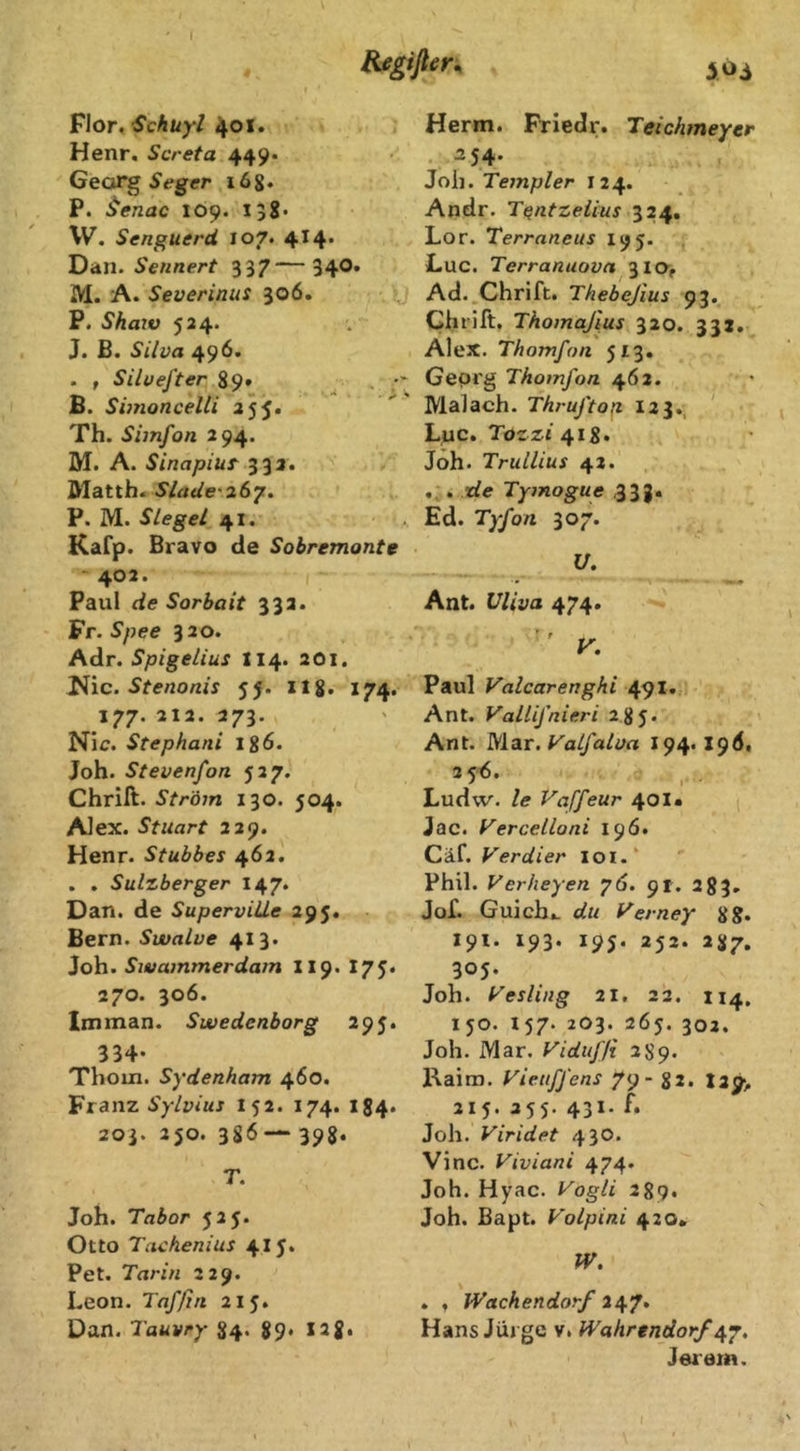 Regiſter.
503
Flor. Schuyl 401.
Henr. Screta 449.
Georg Seger 168.
P. Senac 109. 138.
W. Senguerd 107. 414.
Dan. Sennert 337 — 340.
M. A. Severinus 306.
P. Shaw 524.
J. B. Silva 496.
. , Silveſter 89.
B. Simoncelli 255.
Th. Simſon 294.
M. A. Sinapius 332.
Matth. Slade 267.
P. M. Slegel 41.
Kaſp. Bravo de Sobremonte
402.
Paul de Sorbait 332.
Fr. Spee 320.
Adr. Spigelius 114. 201.
Nic. Stenonis 55. 118. 174.
177. 212. 273.
Nic. Stephani 186.
Joh. Stevenſon 527.
Chriſt. Ström 130. 504.
Alex. Stuart 229.
Henr. Stubbes 462.
. . Sulzberger 147.
Dan. de Superville 295.
Bern. Swalve 413.
Joh. Swammerdam 119. 175.
270. 306.
Imman. Swedenborg 295.
334.
Thom. Sydenham 460.
Franz Sylvius 152. 174. 184.
203. 250. 386 — 398.
T.
Joh. Tabor 525.
Otto Tachenius 415.
Pet. Tarin 229.
Leon. Taſſin 215.
Dan. Tauvry 84. 89. 128.
Herm. Friedr. Teichmeyer
254.
Joh. Templer 124.
Andr. Tentzelius 324.
Lor. Terraneus 195.
Luc. Terranuova 310.
Ad. Chriſt. Thebeſius 93.
Chriſt. Thomaſius 320. 332.
Alex. Thomſon 513.
Georg Thomſon 462.
Malach. Thruſton 123.
Luc. Tozzi 418.
Joh. Trullius 42.
. . de Tymogue 333.
Ed. Tyſon 307.
U.
Ant. Uliva 474.
V.
Paul Valcarenghi 491.
Ant. Valliſnieri 285.
Ant. Mar. Valſalva 194. 196.
256.
Ludw. le Vaſſeur 401.
Jac. Vercelloni 196.
Cäſ. Verdier 101.
Phil. Verheyen 76. 91. 283.
Joſ. Guich. du Verney 88.
191. 193. 195. 252. 287.
305.
Joh. Vesling 21. 22. 114.
150. 157. 203. 265. 302.
Joh. Mar. Viduſſi 289.
Raim. Vieuſſens 79 - 82. 129.
215. 255. 431. f.
Joh. Viridet 430.
Vinc. Viviani 474.
Joh. Hyac. Vogli 289.
Joh. Bapt. Volpini 420.
W.
. , Wachendorf 247.
Hans Jürge v. Wahrendorf 47.
Jerem.